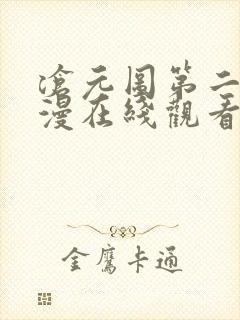 滄元圖第二
漫在綫觀看
金鷹卡通